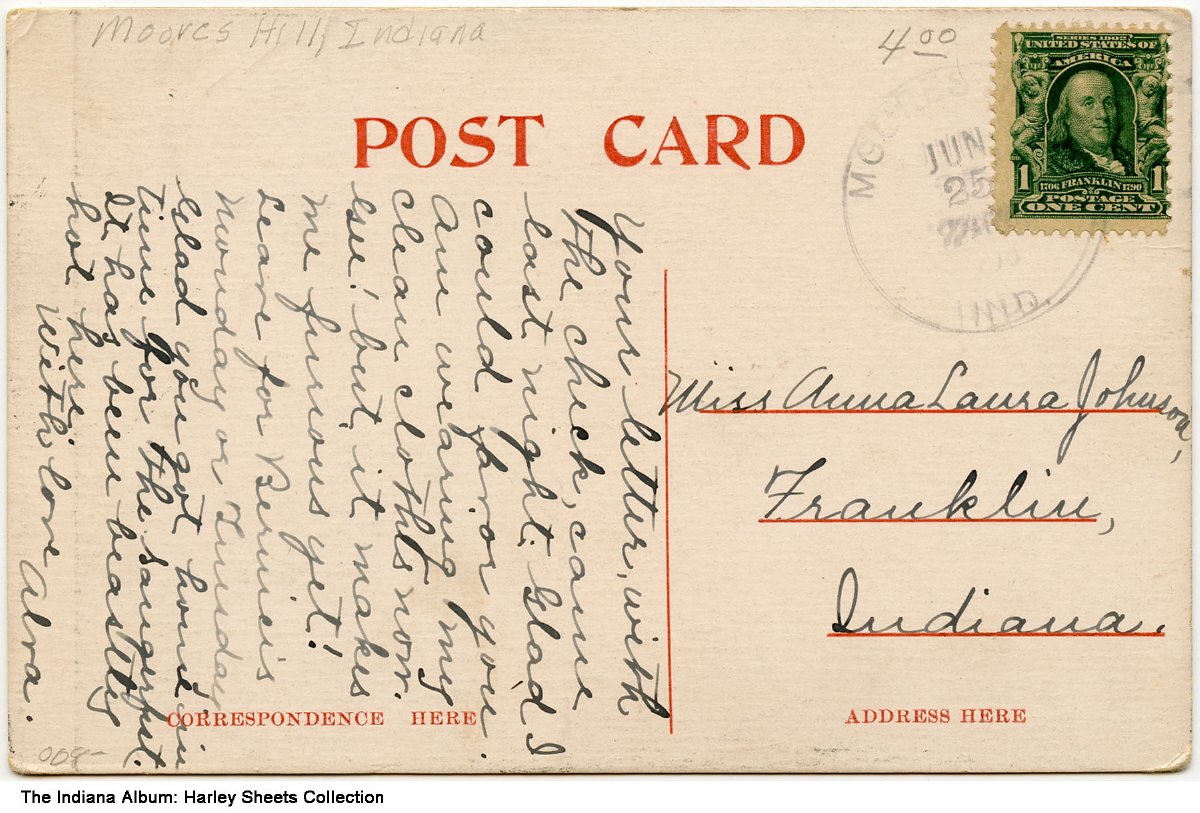 Moores Hill, Indiana
4 00
SERIES 1902
UNITED STATES OF
AMERICA
1 1
1706 FRANKLIN 1790
POSTAGE
ONE CENT
POST CARD
MOORES
JUN
25
IND.
Your letter, with
the check, came
last night. Glad I
could for you.
Am wearing my
clean cloths now.
Gee! but it makes
me furious yet!
Leave for Bernice's
Monday or Tuesday
Glad you got home in
time for the sangerfest.
It has been beastley
hot here.
With love
Alva.
Miss Anna Laura Johnson,
Franklin,
Indiana.
CORRESPONDENCE HERE
ADDRESS HERE
The Indiana Album: Harley Sheets Collection